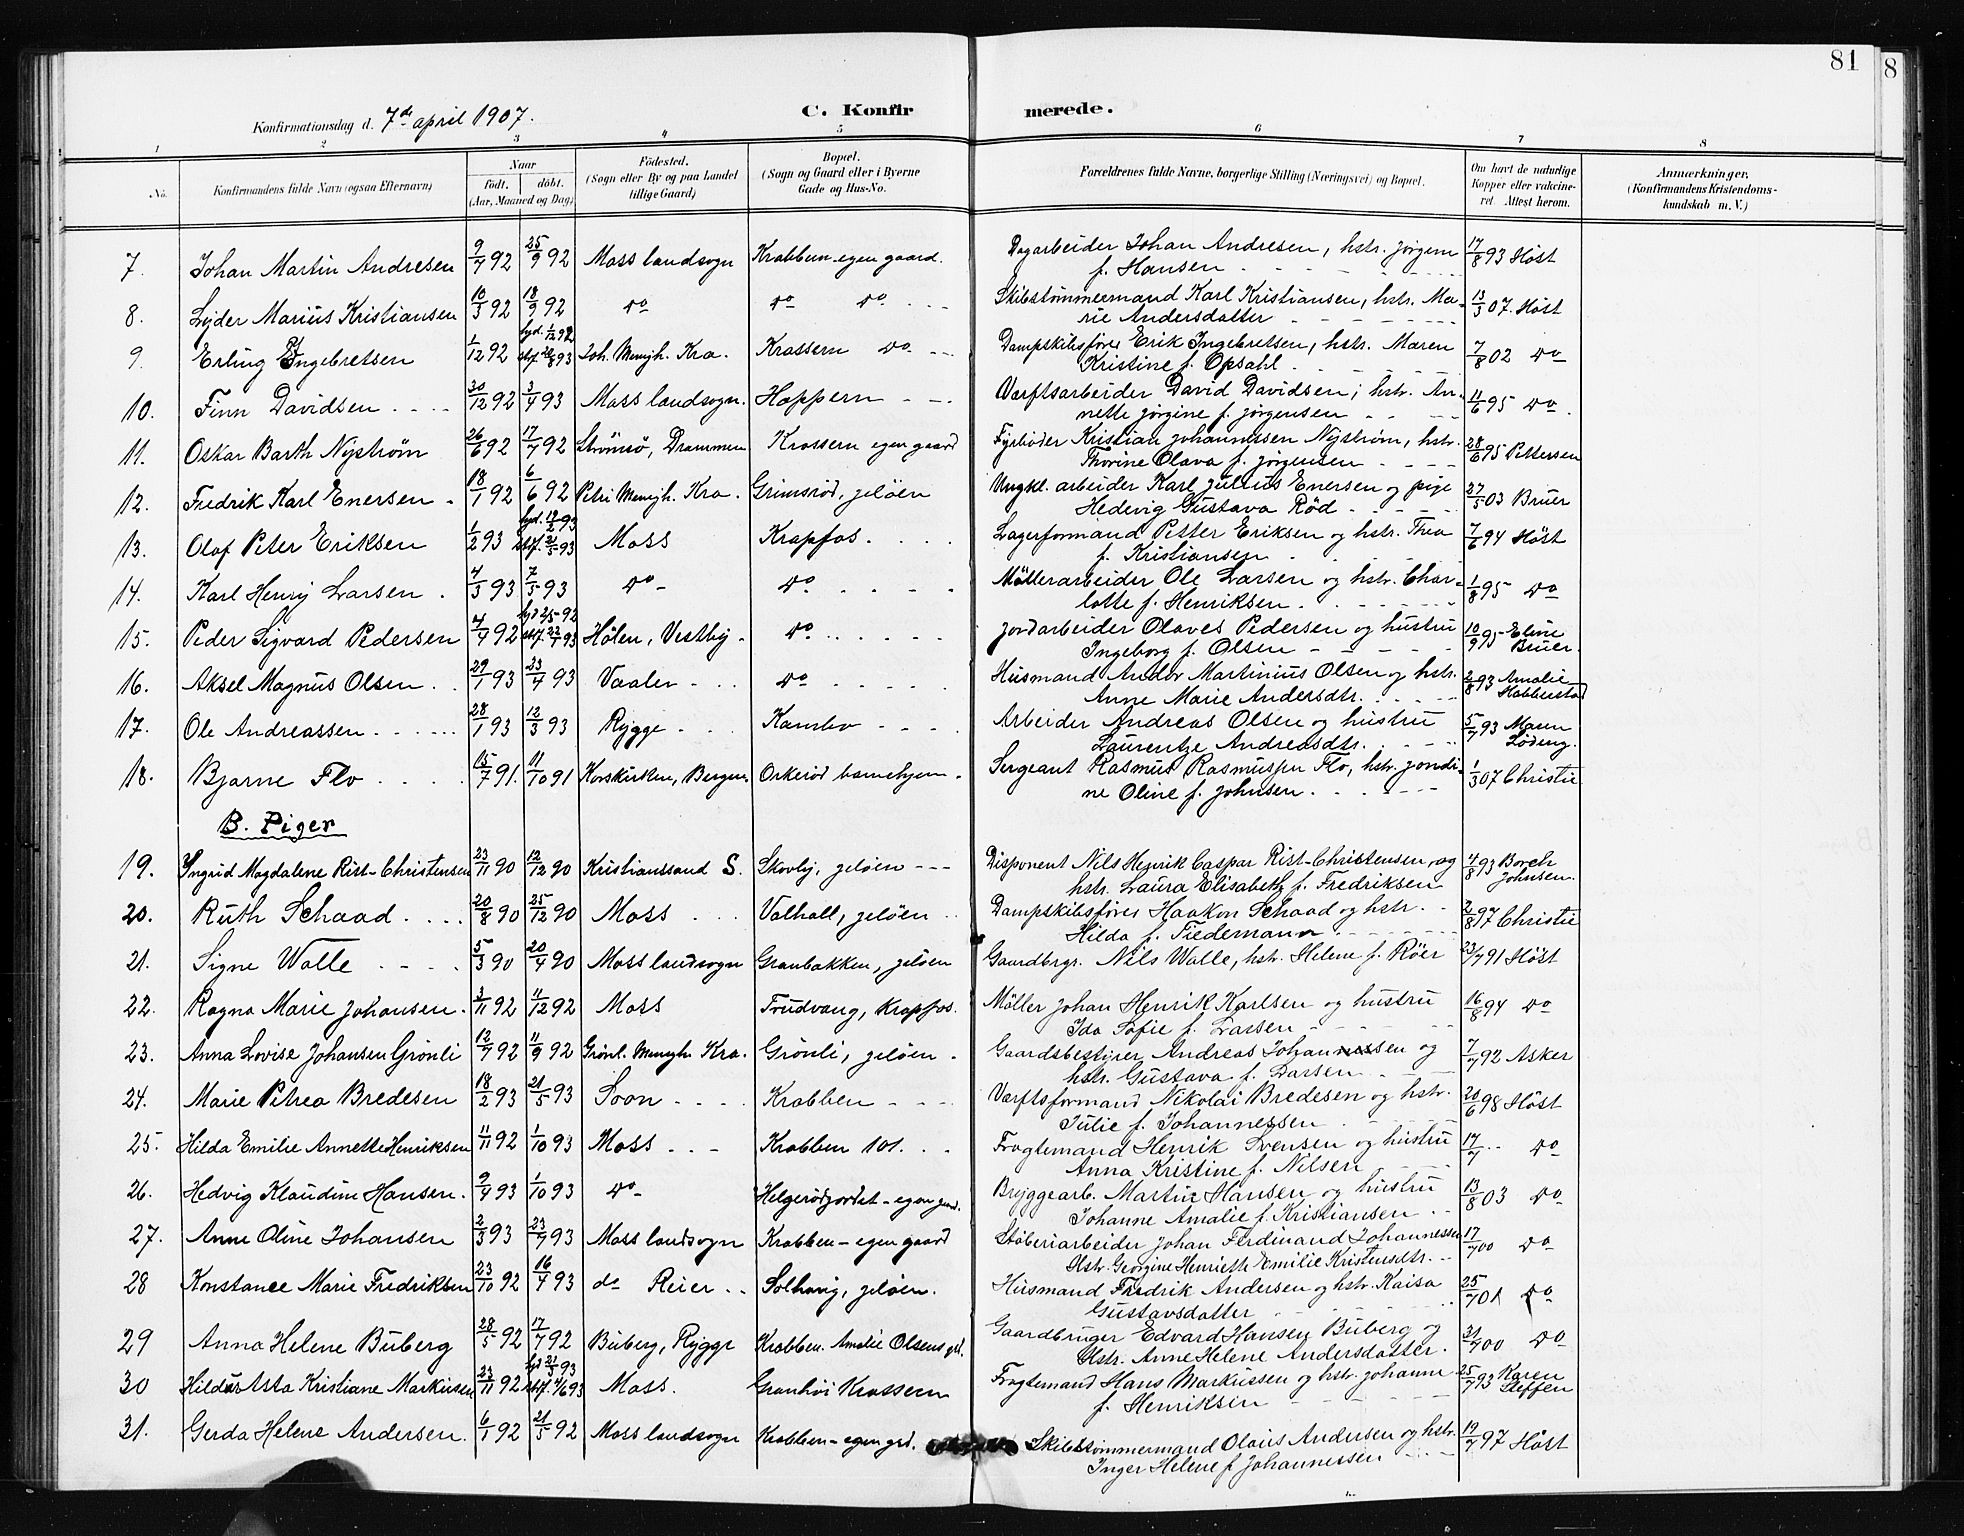 81
8
Konfirmationsdag d. 7de april 1907.
C. Konfirmerede.
1 2 3 4 5 6 7 8
No.
Konfirmandens fulde Navn (ogsaa Efternavn)
Naar
født. døbt.
(Aar, Maaned og Dag)
Födested.
(Sogn eller By og paa Landet
tillige Gaard)
Bopæl.
(Sogn og Gaard eller i Byerne
Gade og Hus-No.
Forældrenes fulde Navne, borgerlige Stilling (Næringsvei) og Bopæl.
Om havt de naturlige
Kopper eller vakcine-
ret. Attest herom.
Anmærkninger.
(Konfirmandens Kristendoms-
kundskab m. V.)
7. Johan Martin Andresen 9/7 92 25/9 92 Moss landsogn Krabbern egen gaard. Dagarbeider Johan Andresen, hstr. Jörgine 17/8 93 Höst
f. Hansen
8. Lyder Marius Kristiansen 10/3 92 18/9 92 do do do Skibstømmermand Karl Kristiansen, hstr. Ma- 13/3 07. Höst
rie Andersdatter
9. Erling Ingebretsen 1/12 92 hjd. 1/12 92 stf. 20/8 93 Joh. Menigh. Kra. Krossern do Dampskibsfører Erik Ingebretsen, hstr. Maren 7/8 02 do
Kristine f. Opsahl
10. Finn Davidsen 30/12 92 3/4 93 Moss landsogn. Hoppern Værftsarbeider David Davidsen; hstr. An- 11/6 95 do
nette Jörgine f. Jörgensen
11. Oskar Barth Nyström 26/6 92 17/7 92 Strömsö, Drammen Krossern egen gaard Fyrbøder Kristian Johannessen Nyström, hstr. 28/6 95 Pettersen
Thorine Olava f. Jörgensen
12. Fredrik Karl Enersen 18/1 92 6/6 92 Petri Menigh. Kra. Grimsröd, Jelöen Ungkl. arbeider Karl Julius Enersen og pige 27/5 03 Bruer
Hedevig Gustava Röd
13. Olaf Peter Eriksen 1/2 93 hjd. 12/2 93 stf. 21/5 93 Moss Krapfos Lagerformand Petter Eriksen og hstr. Thea 7/6 94 Höst
f. Kristiansen
14. Karl Henry Larsen 4/3 93 7/5 93 do do Möllerarbeider Ole Larsen og hstr. Char- 1/8 95 do
lotte f. Henriksen
15. Peder Sigvard Pedersen 4/4 92 Hölen, Vestby do Jordarbeider Olaves Pedersen og hustru 10/9 95 Eline
Ingeborg f. Olsen Bruer.
16. Aksel Magnus Olsen 29/1 93 23/4 93 Vaaler do Husmand Andor Martinius Olsen og hstr. 2/8 93 Amalie
Anne Marie Andersdtr. Habberstad
17. Ole Andreassen 28/1 93 12/3 93 Rygge Kambo Arbeider Andreas Olsen og hustru 5/7 93 Maren
Laurentze Andreasdtr. Löding.
18. Bjarne Flo 15/7 91 11/10 91 Korskirken, Bergen Orkeröd barnehjem Sergeant Rasmus Rasmussen Flo, hstr. Jondi- 1/3 07 Christie
ne Oline f. Johnsen
B. Piger
19. Yngrid Magdalene Rist-Christensen 23/11 90 12/12 90 Kristianssand S. Skovly, Jelöen Disponent Nils Henrik Caspar Rist-Christensen og 4/8 93 Borch
hstr. Laura Elisabeth f. Fredriksen Johnsen.
20. Ruth Schaad 20/8 90 25/12 90 Moss Valhall, Jelöen Dampskibsfører Haakon Schaad og hstr. 2/8 97 Christie
Hilda f. Tiedemann
21. Signe Walle 5/3 90 20/4 90 Moss landsogn Granbakken, Jelöen Gaardbrgr. Nils Walle, hstr. Helene f. Röer 23/7 91 Höst
22. Ragna Marie Johansen 3/11 92 11/12 92 Moss Trudvang, Krapfos. Möller Johan Henrik Karlsen og hustru 16/8 94 do
Ida Sofie f. Larsen
23. Anna Lovise Johansen Grönli 12/7 92 11/9 92 Grönl. Menigh. Kra. Grönli, Jelöen Gaardsbestyrer Andreas Johannessen og 7/7 92 Asker
hstr. Gustava f. Larsen
24. Marie Petrea Bredesen 18/2 93 21/5 93 Soon Krabben Værftsformand Nikolai Bredesen og hstr. 20/6 98 Höst
Julie f. Johannessen
25. Hilda Emilie Annette Henriksen 11/11 92 1/10 93 Moss Krabben 101. Fragtemand Henrik Svensen og hustru 17/7 do
Anna Kristine f. Nilsen
26. Hedvig Klaudine Hansen 9/4 93 1/10 93 do Helgerödjordet - egen grd. Bryggearb. Martin Hansen og hustru 13/8 03 do
Johanne Amalie f. Kristiansen
27. Anne Oline Johansen 2/3 93 23/7 93 Moss landsogn Krabben - egen gaard Støberiarbeider Johan Ferdinand Johannessen 17/7 00 do
Hstr. Georgine Henriette Emilie Kristensdtr.
28 Konstance Marie Fredriksen 23/10 92 16/4 93 do Reier Solhaug, Jelöen. Husmand Fredrik Andersen og hstr. Kaisa 25/7 01 do
Gustavsdatter
29 Anna Helene Buberg 28/5 92 17/7 92 Buberg, Rygge Krabben. Amalie Olsens grd. Gaardbruger Edvard Hansen Buberg og 31/7 00 do
Hstr. Anne Helene Andersdatter.
30 Hildur Asta Kristiane Markusen 23/11 92 Moss. Granhöi Krossern Fragtemand Hans Markussen og hstr. Johanne 25/7 93 Karen
f. Henriksen Steffen
31. Gerda Helene Andersen 6/1 92 21/5 92 Moss landsogn Krabben - egen grd. Skibstømmermand Olaus Andersen og hstr. 19/7 97 Höst
Inger Helene f. Johannessen